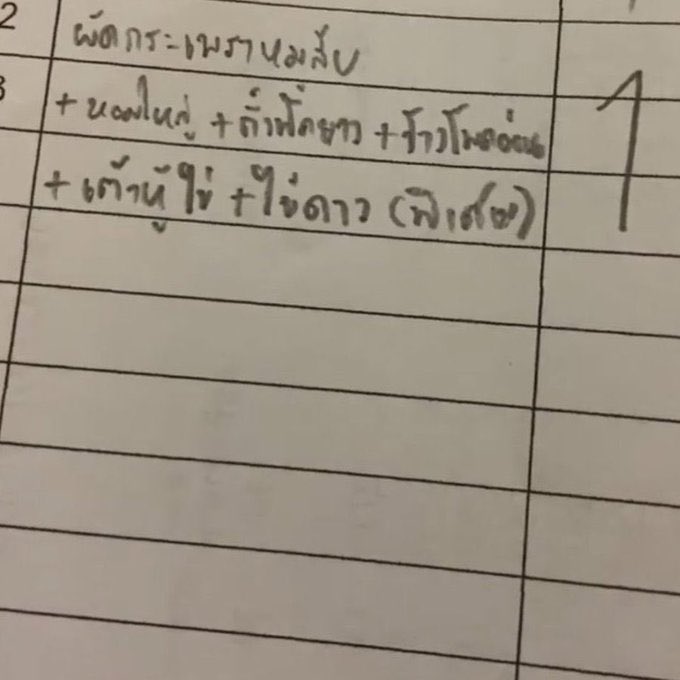 2 ผัดกระเพราหมูสับ
3 +หอมใหญ่ +ถั่วฝักยาว +ข้าวโพดอ่อน 1
+เต้าหู้ไข่ +ไข่ดาว (พิเศษ)